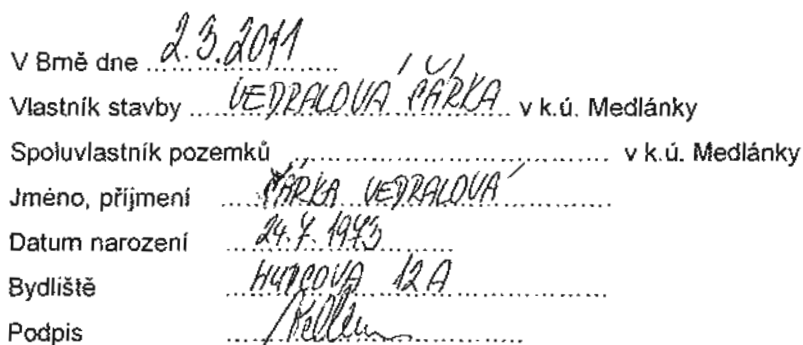 V Brně dne 2.3.2011
Vlastník stavby VEDRALOVÁ ŠÁRKA v k.ú. Medlánky
Spoluvlastník pozemků v k.ú. Medlánky
Jméno, příjmení ŠÁRKA VEDRALOVÁ
Datum narození 24.7.1973
Bydliště HUDCOVA 12A
Podpis